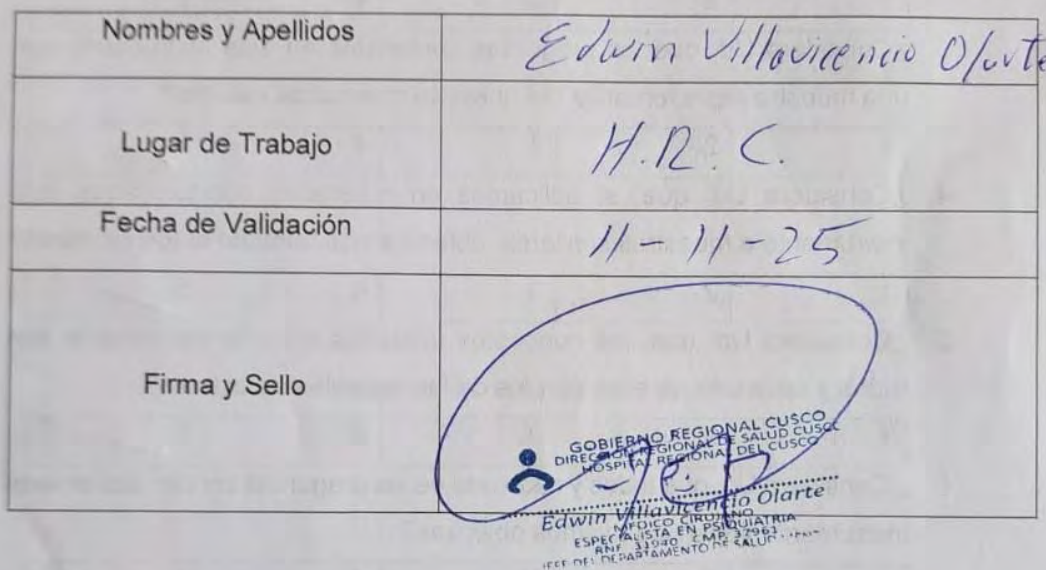 Nombres y Apellidos
Edwin Villavicencio Olarte
Lugar de Trabajo
H.R. C.
Fecha de Validación
11-11-25
Firma y Sello
GOBIERNO REGIONAL CUSCO
DIRECCIÓN REGIONAL DE SALUD CUSCO
HOSPITAL REGIONAL DEL CUSCO
Edwin Villavicencio Olarte
MÉDICO CIRUJANO
ESPECIALISTA EN PSIQUIATRIA
RNE CMP
JEFE DEL DEPARTAMENTO DE SALUD